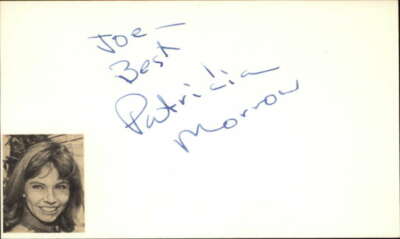 Joe –
Best
Patricia
Morrow